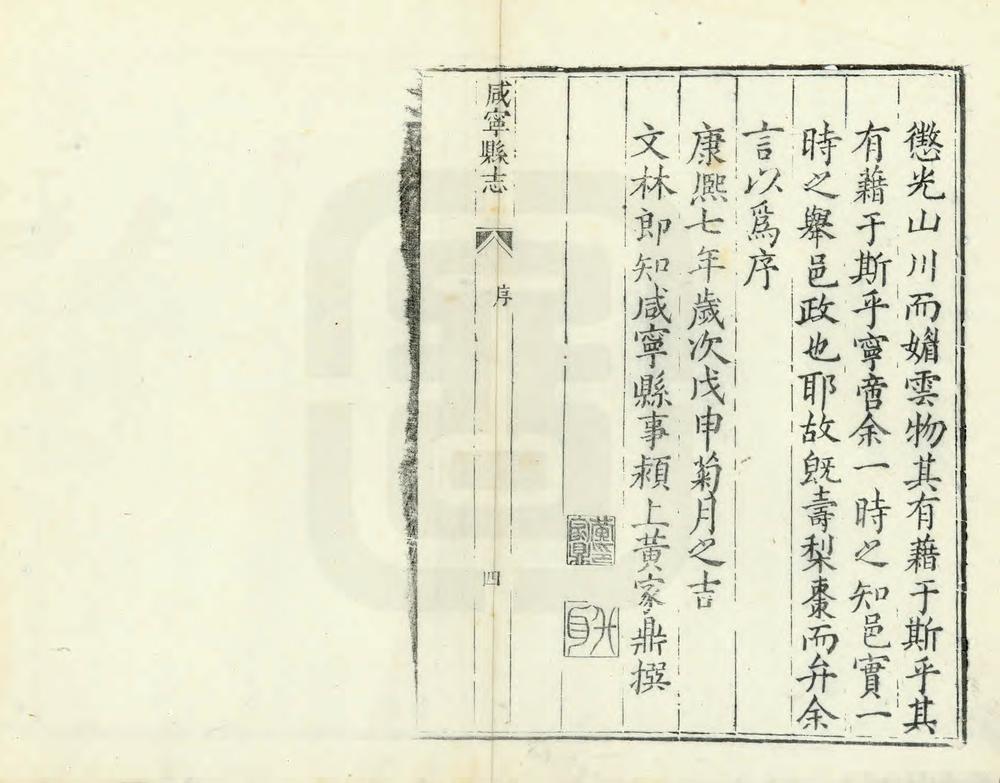 懲光山川而媚雲物其有藉于斯乎其
有藉于斯乎寧啻余一時之知邑實一
時之舉邑政也耶故既壽梨棗而弁余
言以爲序
康熙七年歲次戊申菊月之吉
文林郎知咸寧縣事潁上黃家鼎撰
黃印家鼎
咸寧縣志
序
四